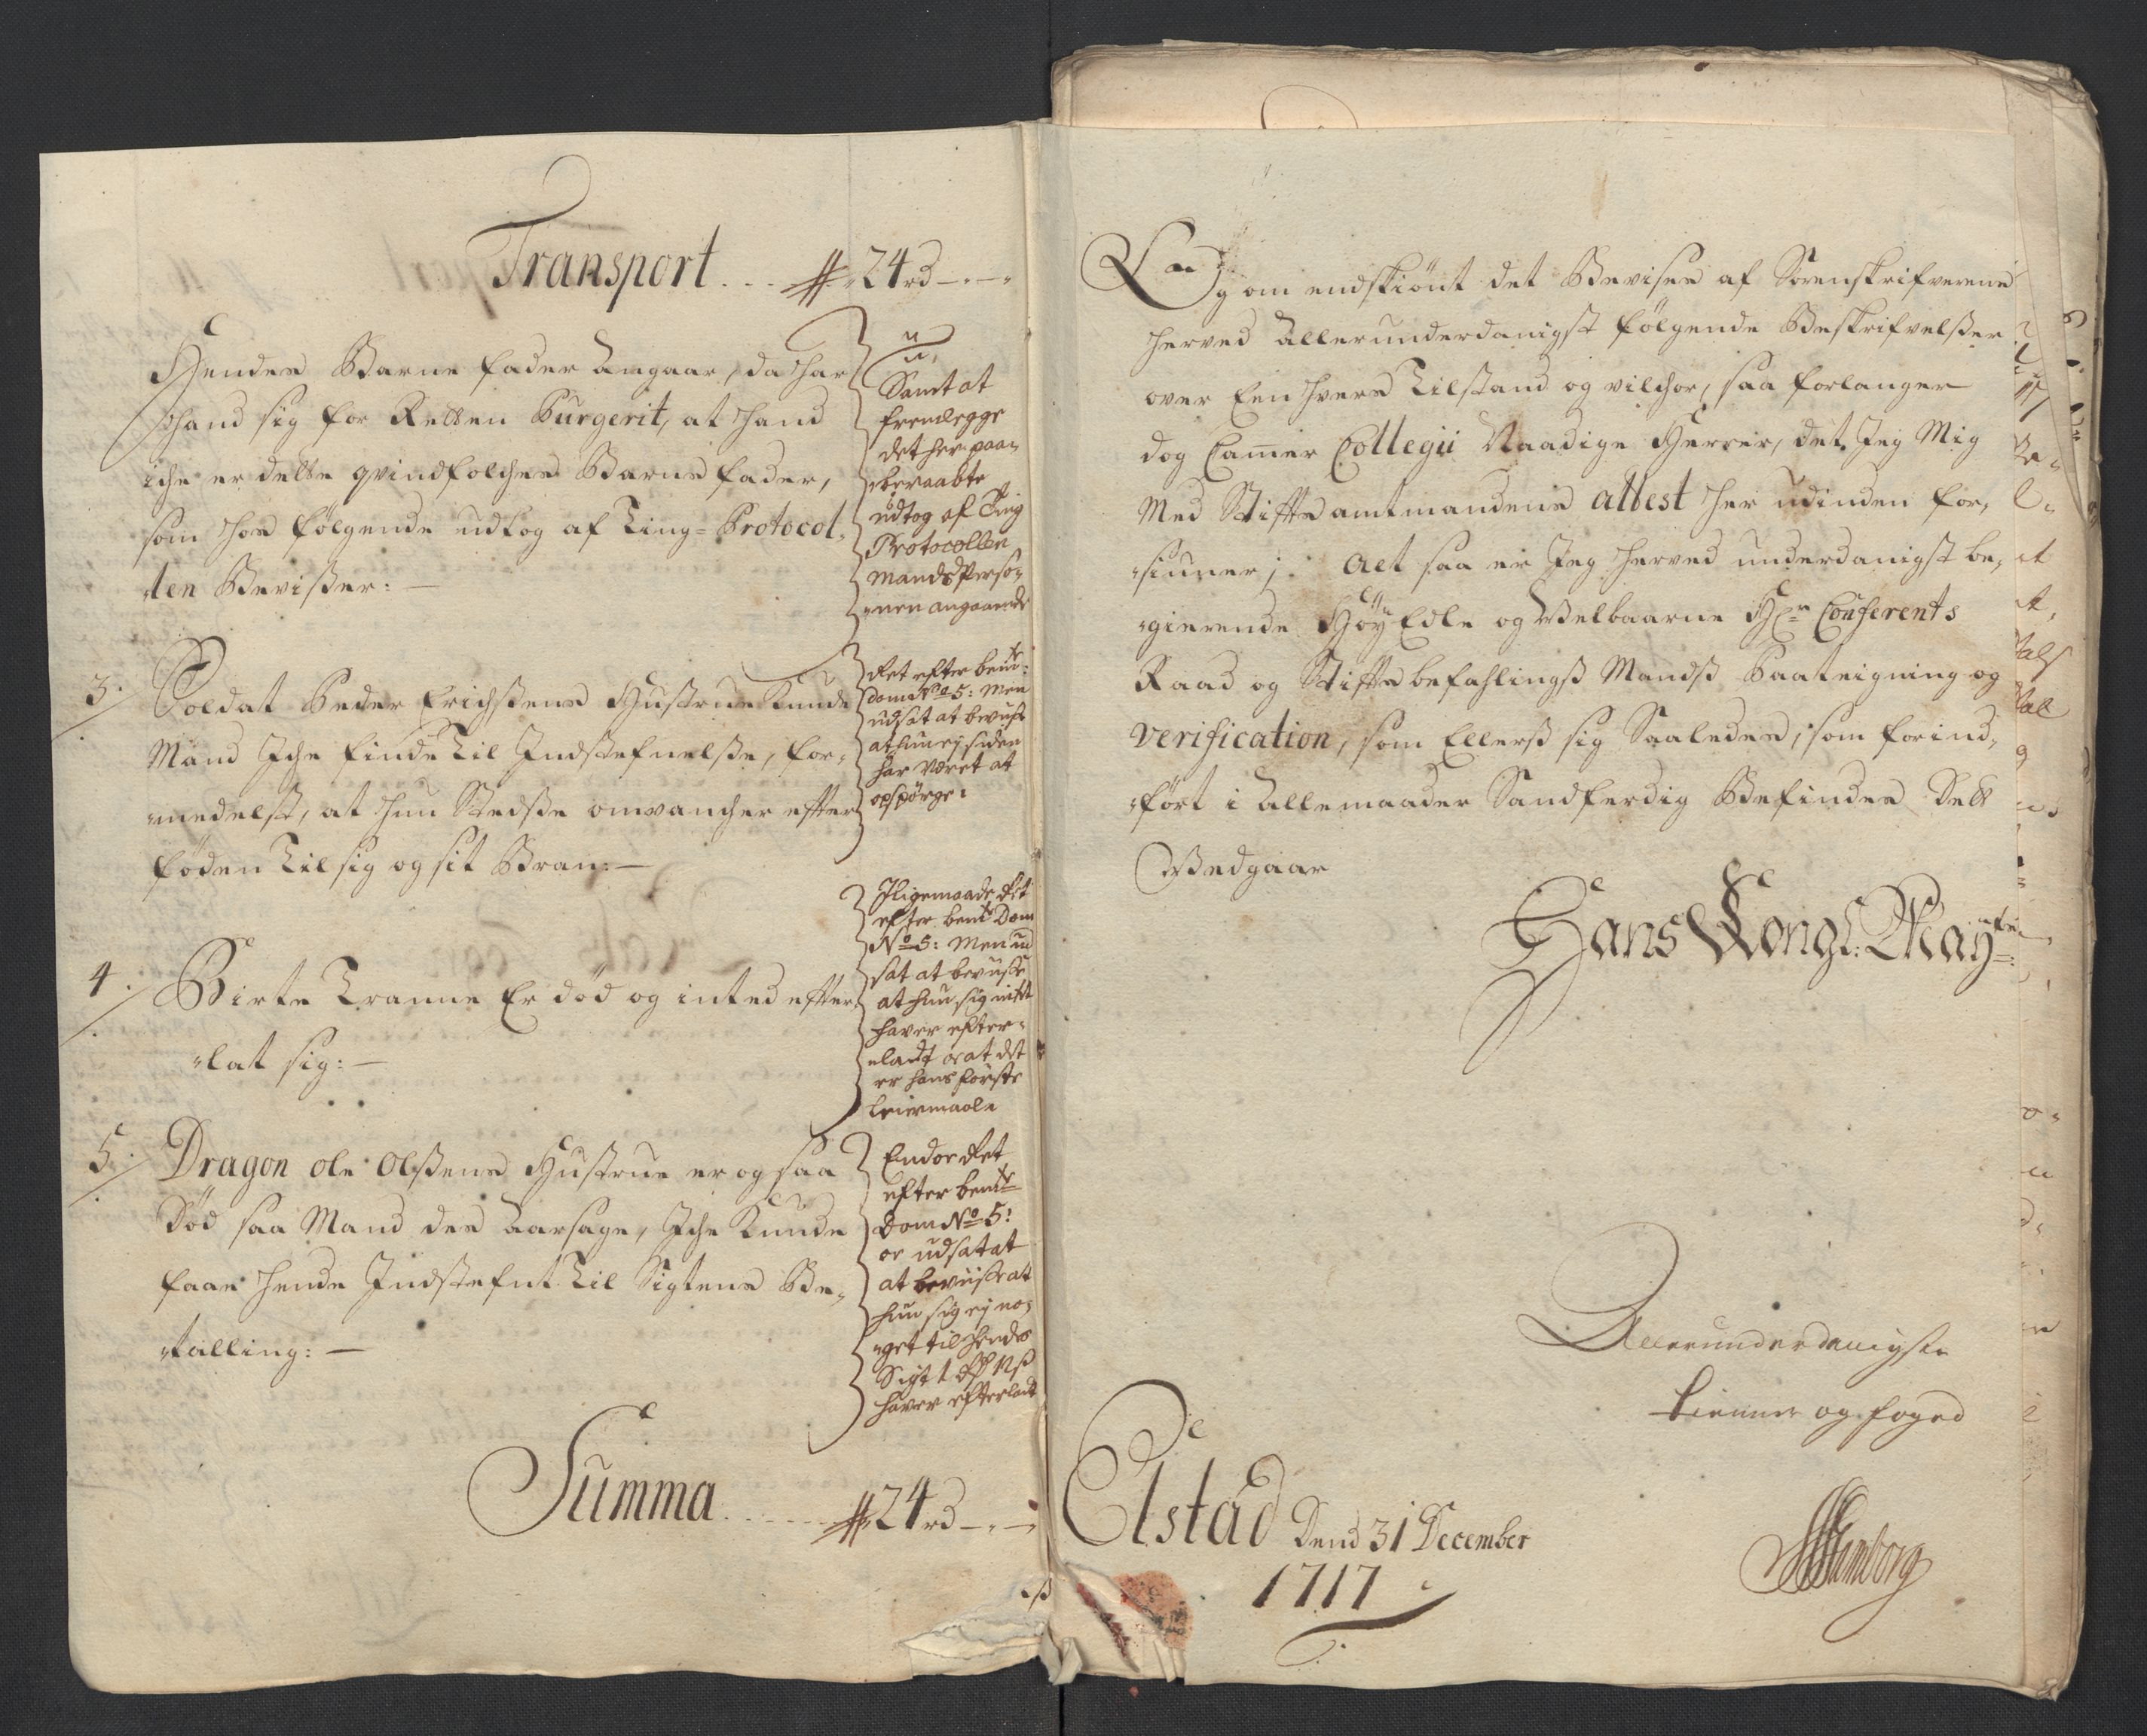 Transport .... 24 rd – " – "
Hendes Barne fader Angaar, da har
hand sig for Retten Purgerit, at hand
iche er dette qvindfolches Barne fader,
som hos følgende udtog af Ting-Protocol-
"len Bevisser: –
Samt at
fremlegge
det her paa-
beraabte
udtog af Ting
Protocollen
Mands Perso-
"nen angaaende
3. Soldat Peder Erichsens Hustrue Kunde
Mand Iche finde Til Indstefnelse, for-
"medelst, at hun Stedse omvancher efter
føden Til sig og sit Bran: –
Det efter bem.te
Dom No 5: Men
udsat at bevise
at hun ej siden
har været at
opspørge:
4. Birte Tranne Er død og inted efter
"lat sig: –
Iligemaade Det
efter bem.te Dom
No 5: Men ud
sat at bevise
at hun sig intet
haver efter-
"ladt og at det
er hans første
Leiermaale
5. Dragon ole Olsens Hustrue er og saa
Død saa Mand des Aarsage, Iche Kunde
faae hende Indstefnt Til Sigtens Be-
"talling: –
Endog Det
efter bem.te
Dom No 5:
er udsat at
at beviise at
hun sig ej no-
"get til hendes
Sigt 1
haver efterladt
Summa ...... 24 rd – " –
Og om endskiönt det Bevises af Sorenskrifverens
herved Allerunderdanigst følgende Beskrifvelser
over Een hvers Tilstand og vilchor, saa forlanger
dog Camer Collegii Naadige Herrer, det Jeg Mig
Med Stifts amtmandens attest her udinden for-
"siuner; Alt saa er Jeg herved underdanigst be-
"gierende Høy Edle og Velbaarne Hr Conferents
Raad og Stifts befahlings Mands Paateigning og
verification, som Ellers sig Saaledes, som forind-
"ført i Allemaader Sandferdig Befindes Dett
Vedgaar
Hans Kongl: May.ts
Allerunderdanigste
tienner og foged
Elstad Dend 31 December
1717